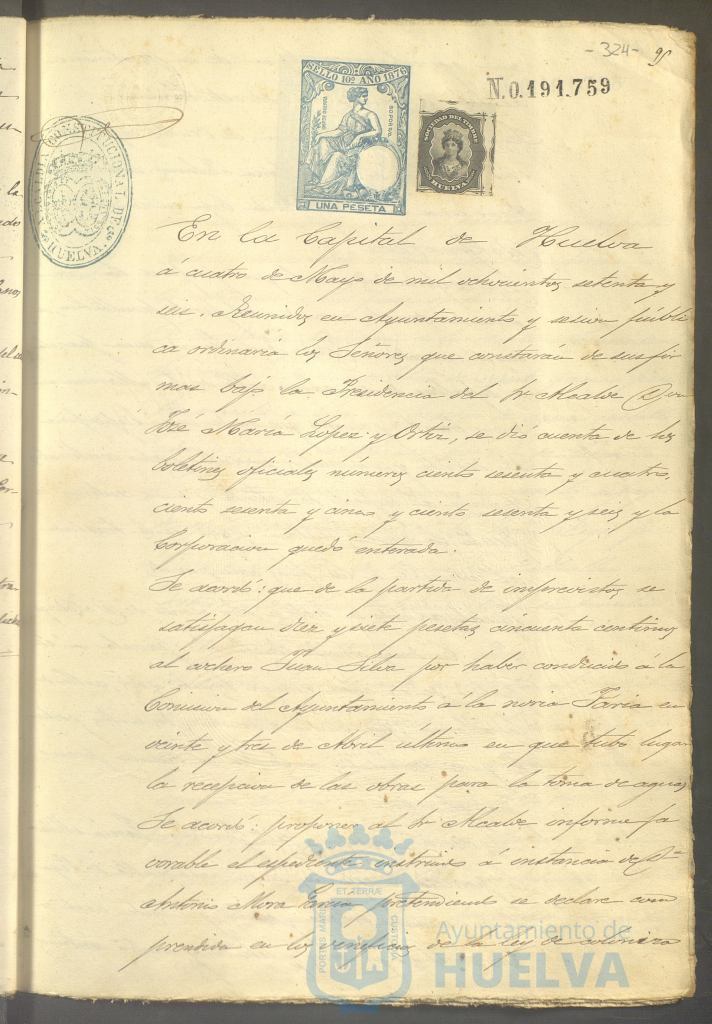 -324- 95
N.0.191.759
SELLO 10º AÑO 1876
UNA PESETA
SOCIEDAD DEL TIMBRE
HUELVA
ALCALDIA CONSTITUCIONAL DE HUELVA
En la Capital de Huelva
á cuatro de Mayo de mil ochocientos setenta y
seis. Reunidos en Ayuntamiento y sesion públi
ca ordinaria los Señores que constarán de sus fir
mas bajo la Presidencia del Sr Alcalde Don
José María Lopez y Ortiz, se dió cuenta de los
boletines oficiales números ciento sesenta y cuatro,
ciento sesenta y cinco y ciento sesenta y seis y la
Corporacion quedó enterada.
Se acordó: que de la partida de imprevistos, se
satisfagan diez y siete pesetas cincuenta centimos
al cochero Juan Silva por haber conducido á la
Comision del Ayuntamiento á la noria Faria en
veinte y tres de Abril último en que tubo lugar
la recepcion de las obras para la toma de aguas
Se acordó: proponer al Sr Alcalde informe fa
vorable el espediente instruido á instancia de Dª
Antonio Mora Garcia pretendiendo se declare com
prendida en los veneficios de la ley de coloniza
PORTUS MARIS ET TERRÆ CUSTODIA
Ayuntamiento de
HUELVA